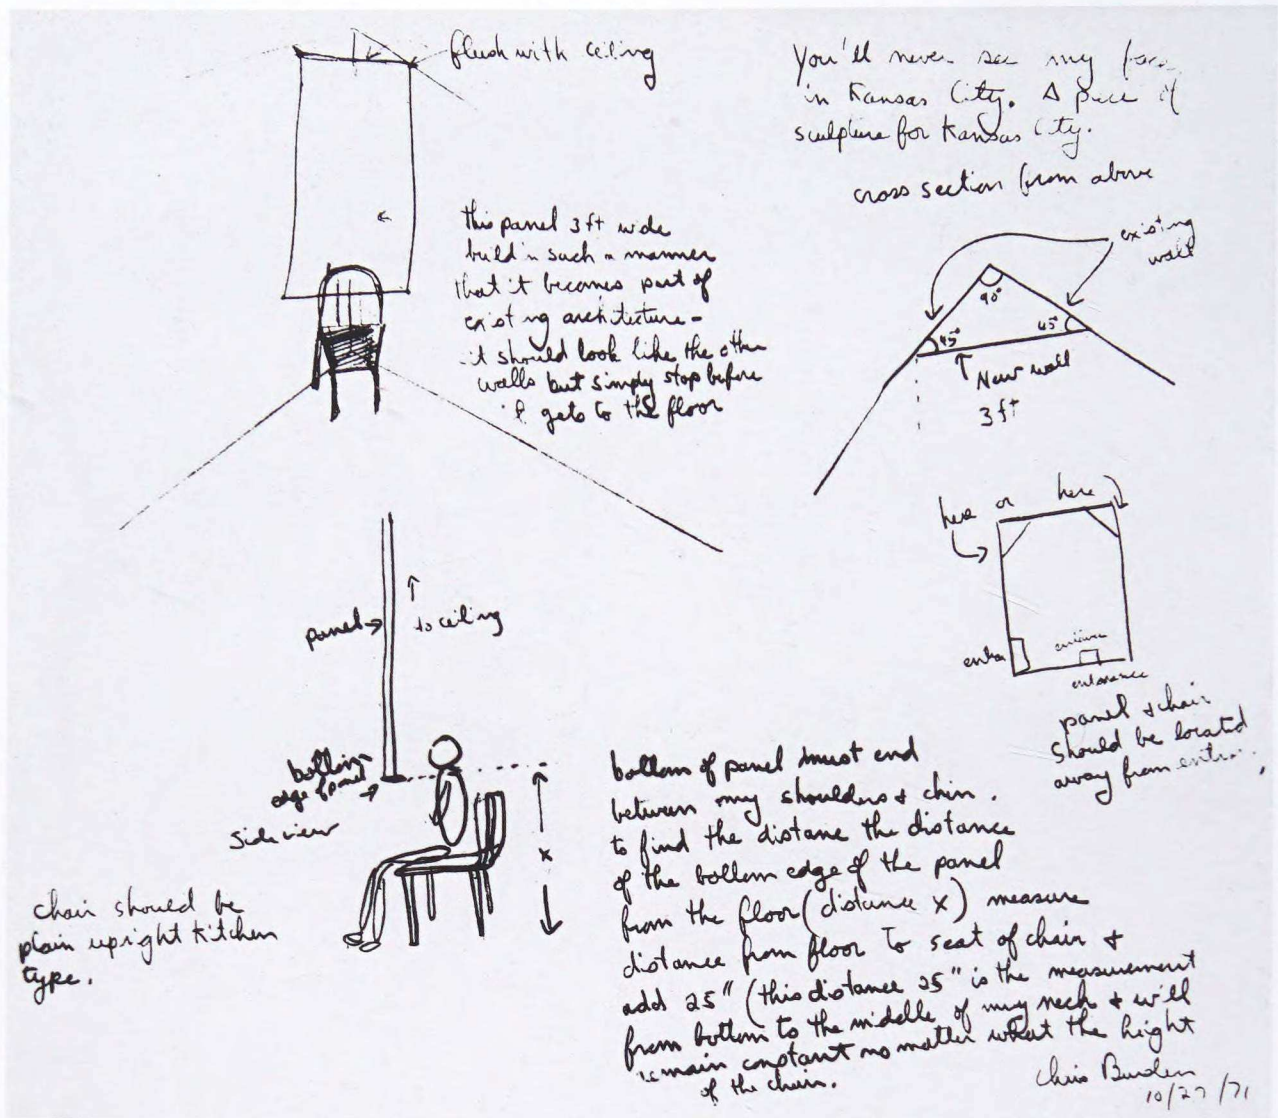 flush with ceiling
You'll never see my face
in Kansas City. A piece of
sculpture for Kansas City.
cross section from above
existing
wall
90°
45°
45°
New wall
3 ft
this panel 3ft wide
build in such a manner
that it becomes part of
existing architecture -
it should look like the other
walls but simply stop before
it gets to the floor
here or here
entra
entrance
entorance
panel & chair
should be located
away from entr...
panel
to ceiling
bottom
edge of panel
side view
x
chair should be
plain upright kitchen
type.
bottom of panel must end
between my shoulders & chin.
to find the distane the distance
of the bottom edge of the panel
from the floor (distance x) measure
distance from floor to seat of chair &
add 25" (this distance 25" is the measurement
from bottom to the middle of my neck & will
remain constant no matter what the hight
of the chair.
Chris Burden
10/27/71